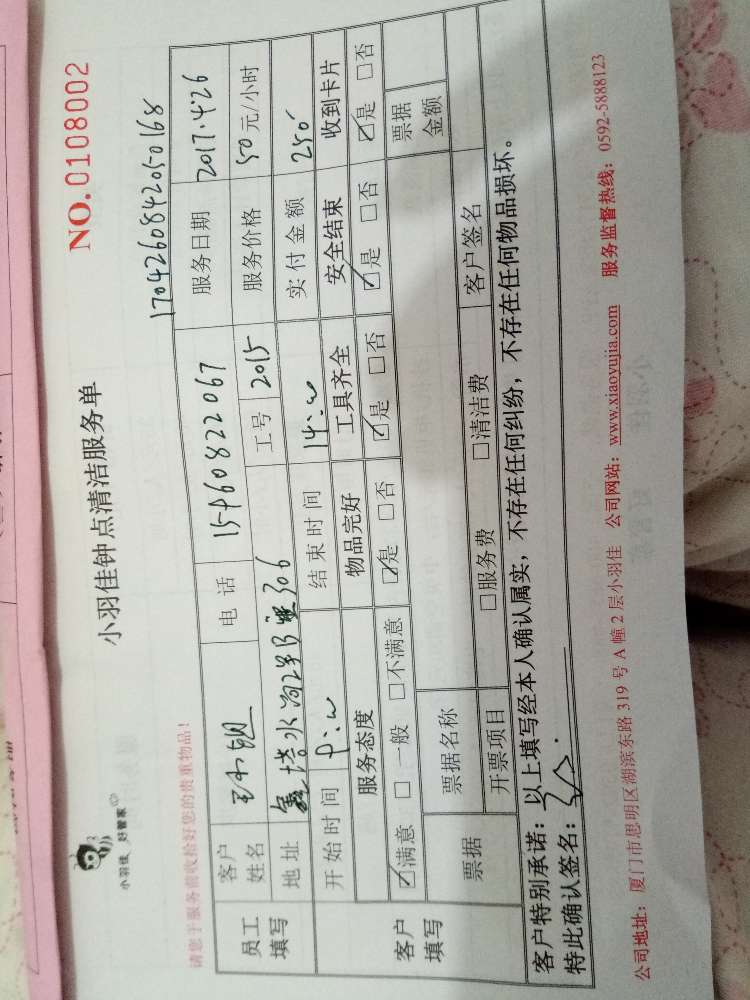 小羽佳 好管家
小羽佳钟点清洁服务单
NO.0108002
请您于服务前收拾好您的贵重物品！
1704260842050168
员工填写 客户姓名 电话 15960822067 服务日期 2017.4.26
地址 306 工号 2015 服务价格 50元/小时
开始时间 9:00 结束时间 14:00 实付金额 250
客户填写 服务态度 物品完好 工具齐全 安全结束 收到卡片
☑满意 □一般 □不满意 ☑是 □否 ☑是 □否 ☑是 □否 ☑是 □否
票据 票据名称 票据金额
开票项目 □服务费 □清洁费 客户签名
客户特别承诺：以上填写经本人确认属实，不存在任何纠纷，不存在任何物品损坏。
特此确认签名：
公司地址：厦门市思明区湖滨东路319号A幢2层小羽佳 公司网站：www.xiaoyujia.com 服务监督热线：0592-5888123